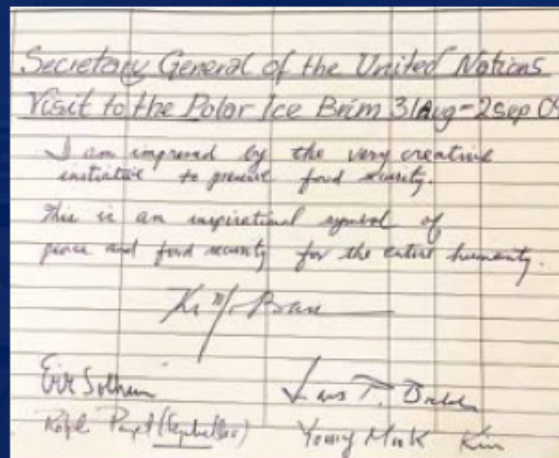 Secretary General of the United Nations
Visit to the Polar Ice Brim 31Aug-2Sep 09
I am impressed by the very creative
initiative to preserve food security.
This is an inspirational symbol of
peace and food security for the entire humanity.
Ki M. Ban
Erik Solheim
Rolph Payet (Seychelles)
Young Mok Kim